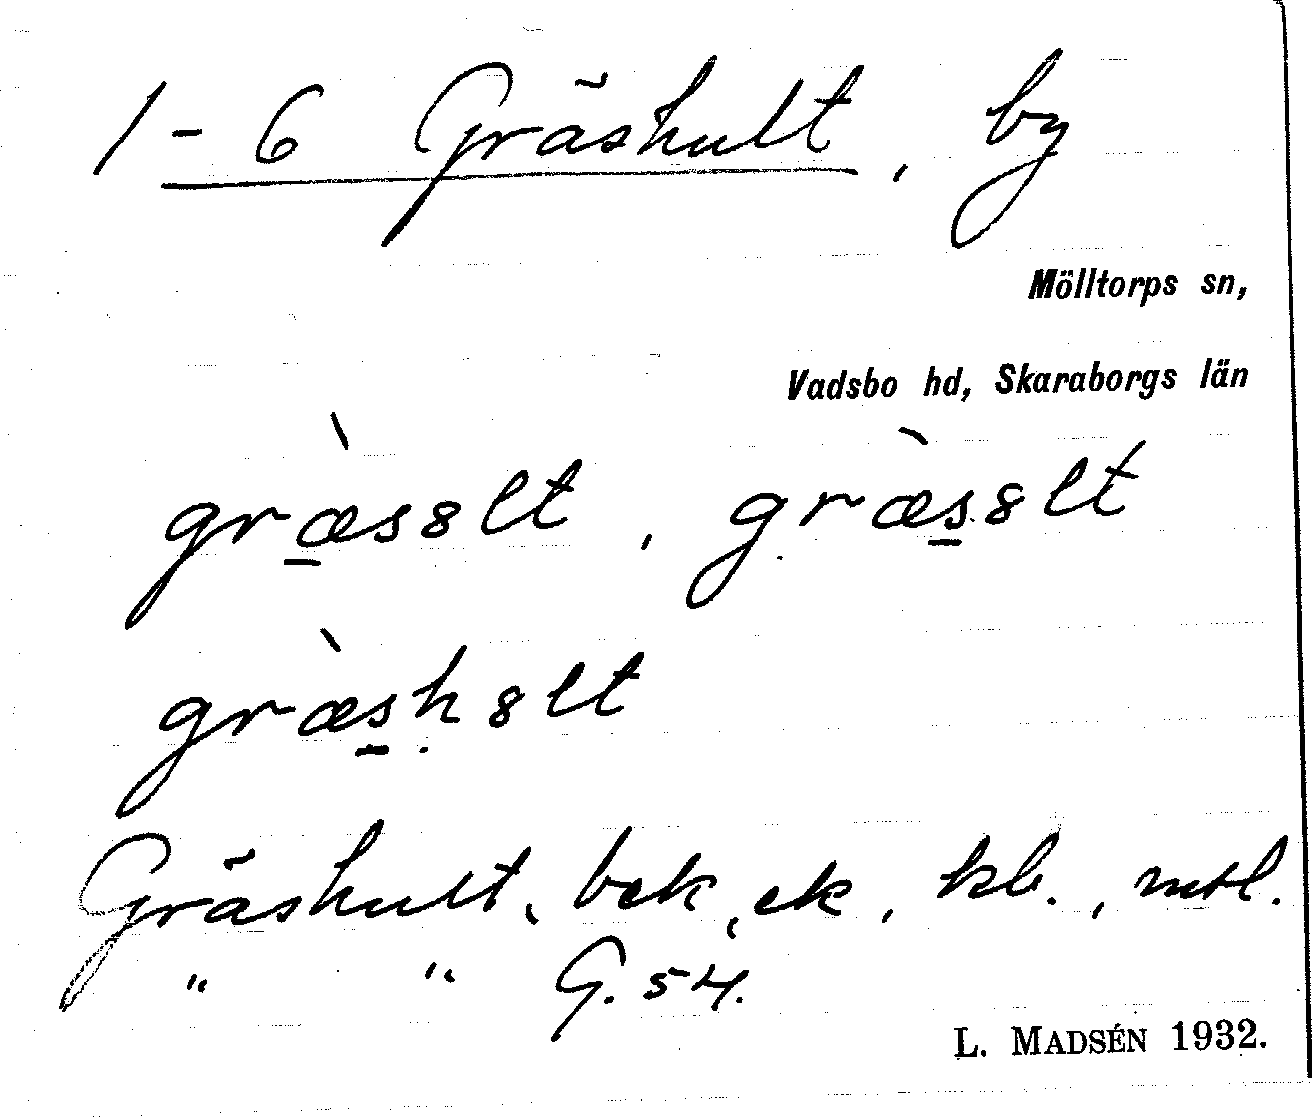 1-6 Gräshult, by
Mölltorps sn,
Vadsbo hd, Skaraborgs län
græ̀s8lt, græ̀s8lt
græ̀sh8lt
Gräshult, bek, ek, kb., mtl.
" " G. 54.
L. MADSÉN 1932.